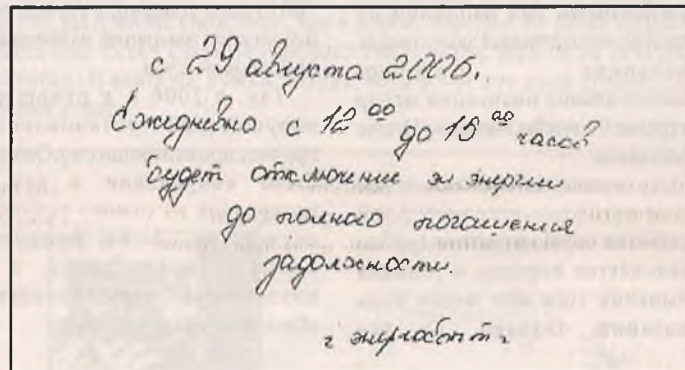 с 29 августа 2006г.
Ежедневно с 12 00 до 15 00 часов
будет отключение эл энергии
до полного погашения
задолжности.
г энергосбыт.